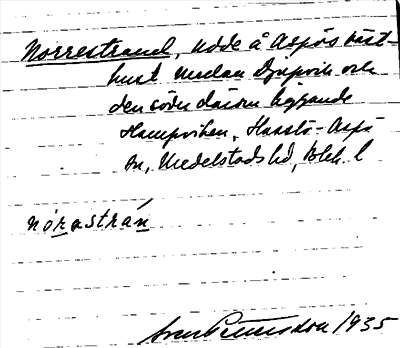 Norrestrand, udde å Aspös väst-
kust mellan Djupvik och
den söder därom liggande
Hampviken, Hasslö-Aspö
sn, Medelstads hd, Blek. l
nórastrán
Sven Pettersson 1935